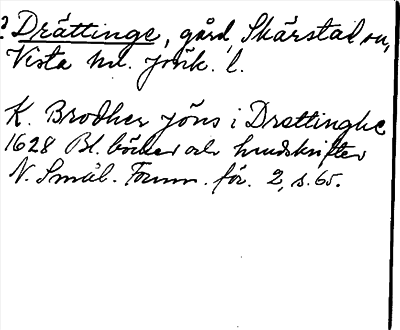 ? Drättinge, gård, Skärstad sn,
Vista hd. Jönk. l.
K. Brodher Jöns i Drettinghe
1628 Bl. böcker och handskrifter
N. Smål. Fornm.för. 2, s. 65.